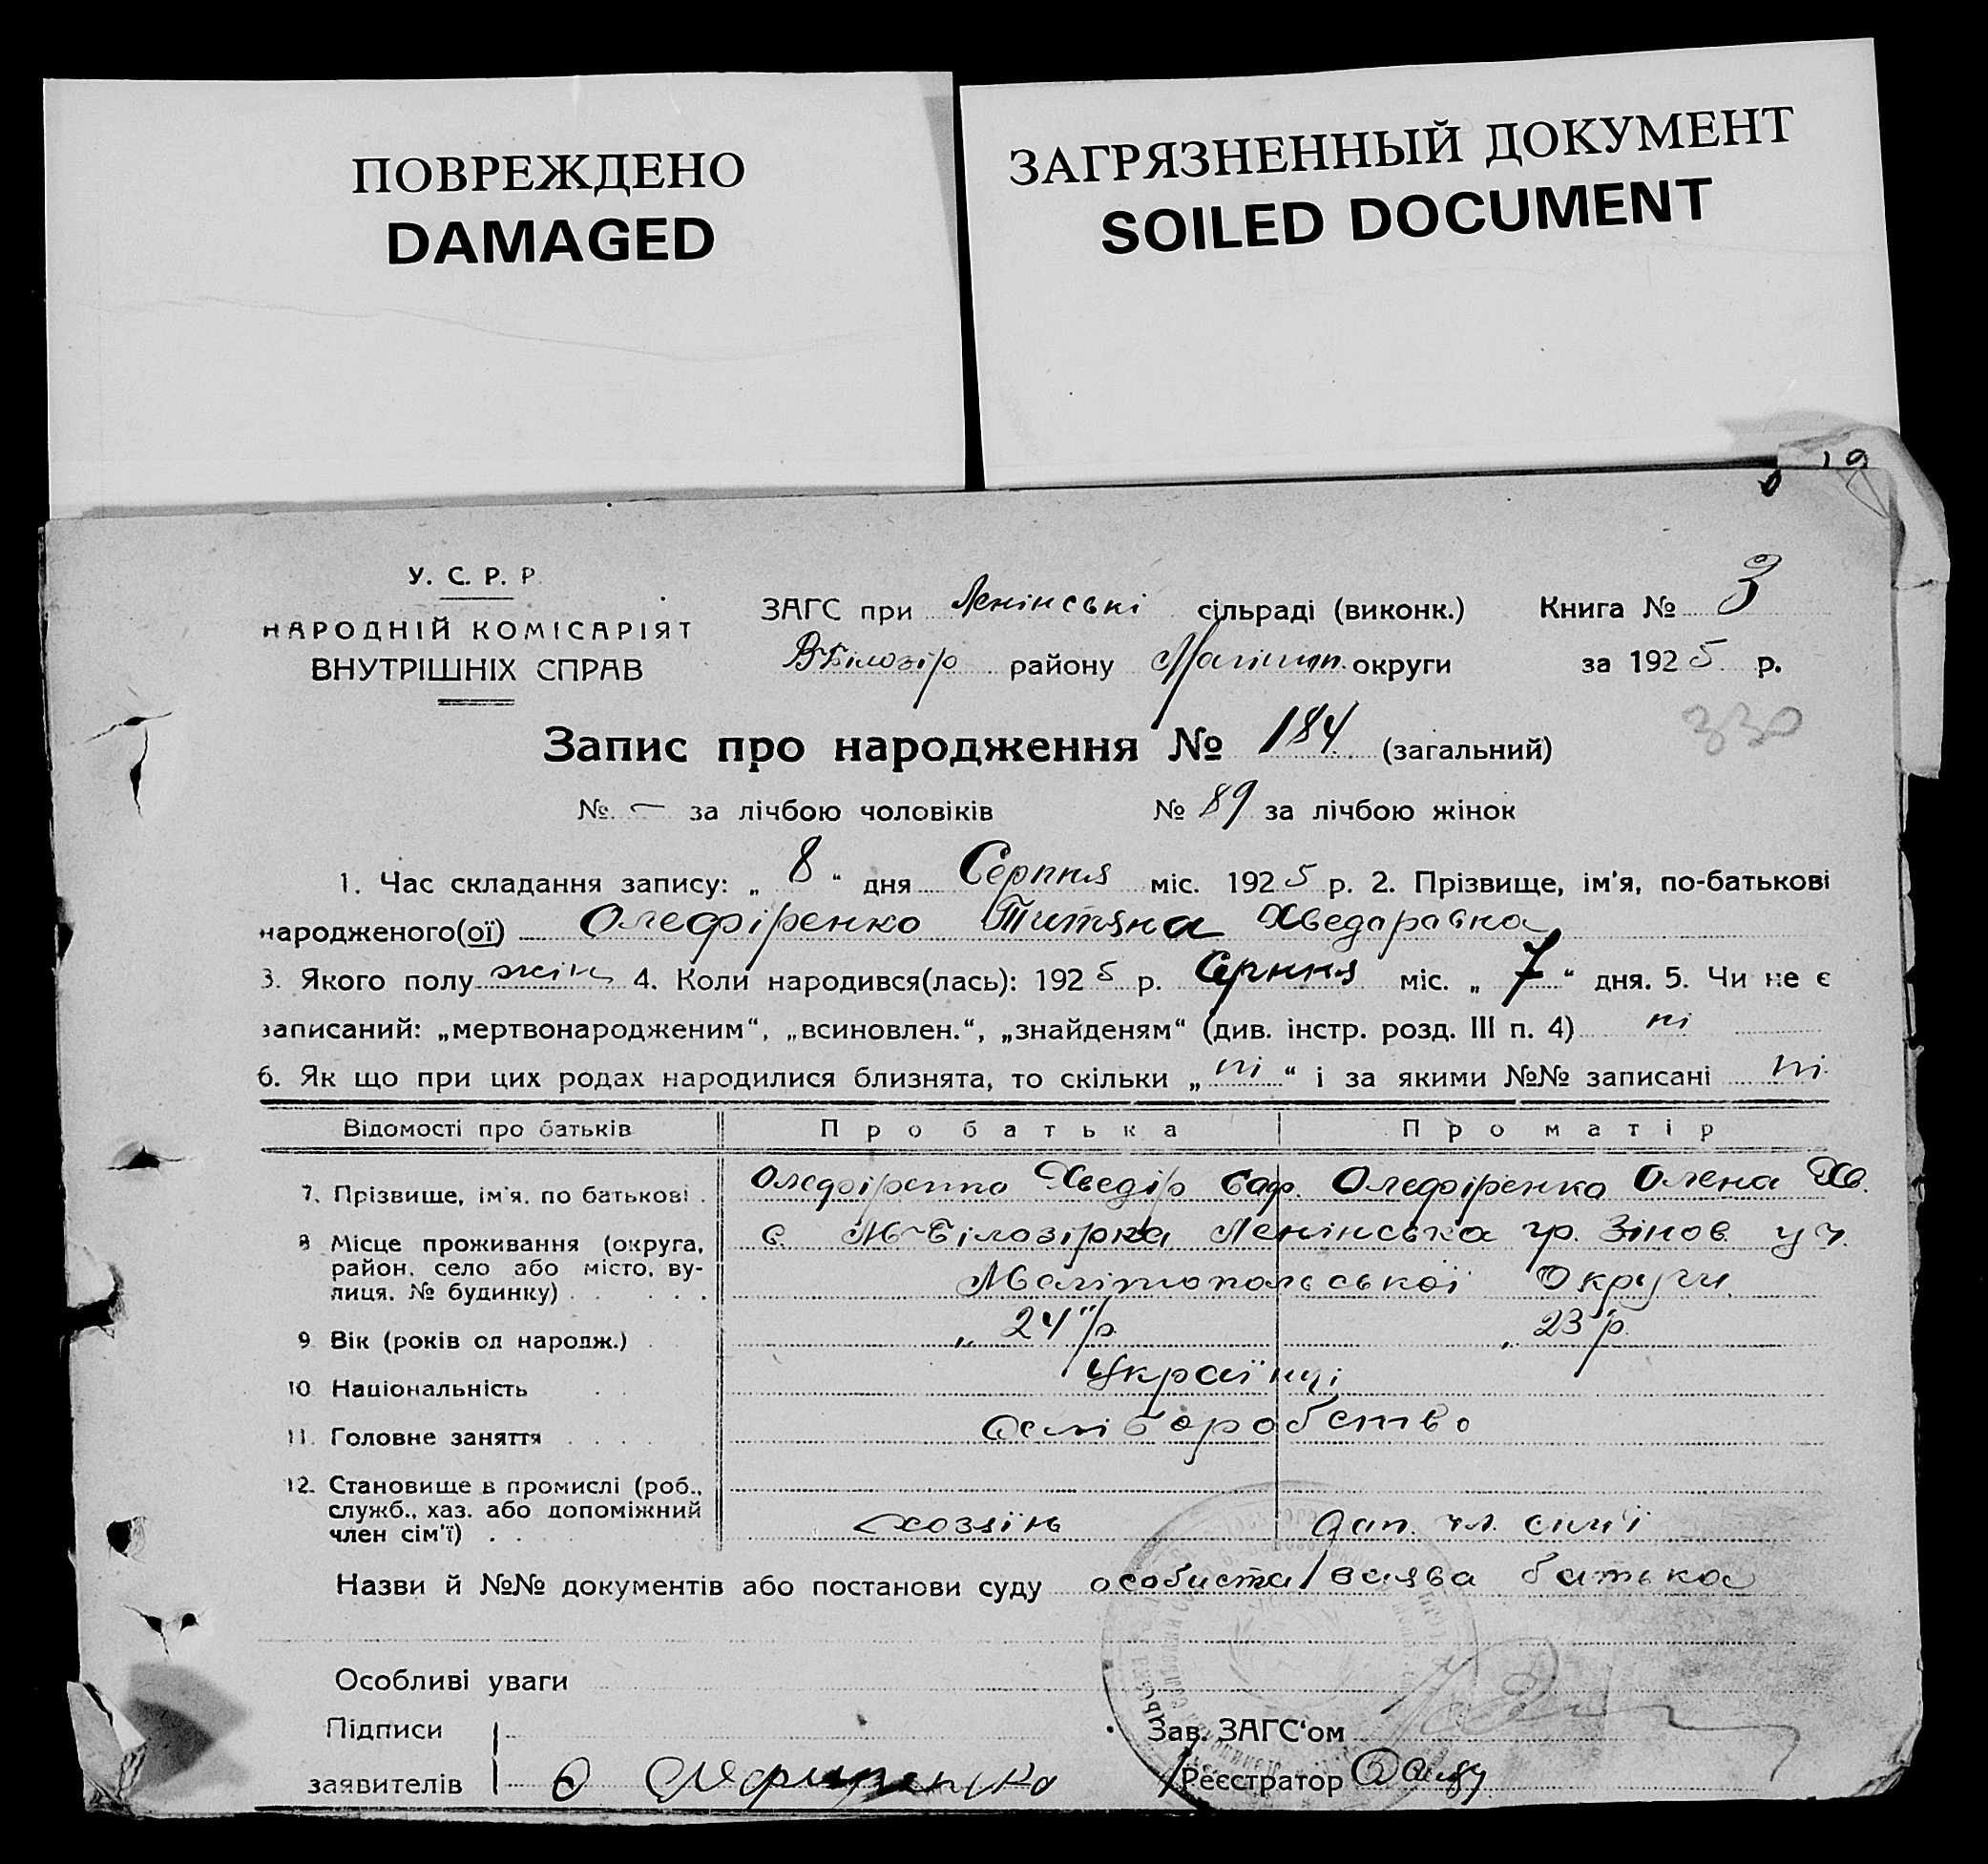 ПОВРЕЖДЕНО
DAMAGED
ЗАГРЯЗНЕННЫЙ ДОКУМЕНТ
SOILED DOCUMENT
У. С. Р. Р.
НАРОДНІЙ КОМІСАРІЯТ
ВНУТРІШНІХ СПРАВ
ЗАГС при Ленінські сільраді (виконк.) Книга № 3
ВБілозір району округи за 1925 р.
330
Запис про народження № 184 (загальний)
№ – за лічбою чоловіків № 89 за лічбою жінок
1. Час складання запису: „ 8 “ дня Серпня міс. 1925 р. 2. Прізвище, ім'я, по-батькові
народженого(ої) Олефіренко Титяна Хведаравна
3. Якого полу жін 4. Коли народився(лась): 1925 р. Серпня міс. „ 7 “ дня. 5. Чи не є
записаний: „мертвонародженим“, „всиновлен.“, „знайденям“ (див. інстр. розд. III п. 4) ні
6. Як що при цих родах народилися близнята, то скільки „ ні “ і за якими №№ записані ні
Відомості про батьків Про батька Про матір
7. Прізвище, ім'я, по батькові Олефіренко Хведір Олефіренко Олена Хв.
8 Місце проживання (округа, район, село або місто, вулиця, № будинку) с. М-Білозірка Ленінська гр. Зінов.
Мелітопольської Округи
9 Вік (років од народж.) „ 24 "р. „ 23 р.
10 Національність Українці
11. Головне заняття
12. Становище в промислі (роб., служб., хаз. або допоміжний член сім'ї) хозяїн доп. чл. сім'ї
Назви й №№ документів або постанови суду особиста заява батька
Особливі уваги
Підписи
заявителів
Зав. ЗАГС'ом
Реєстратор